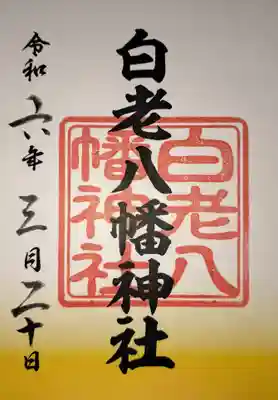 白老八幡神社
白老八
幡神社
令和六年三月二十日